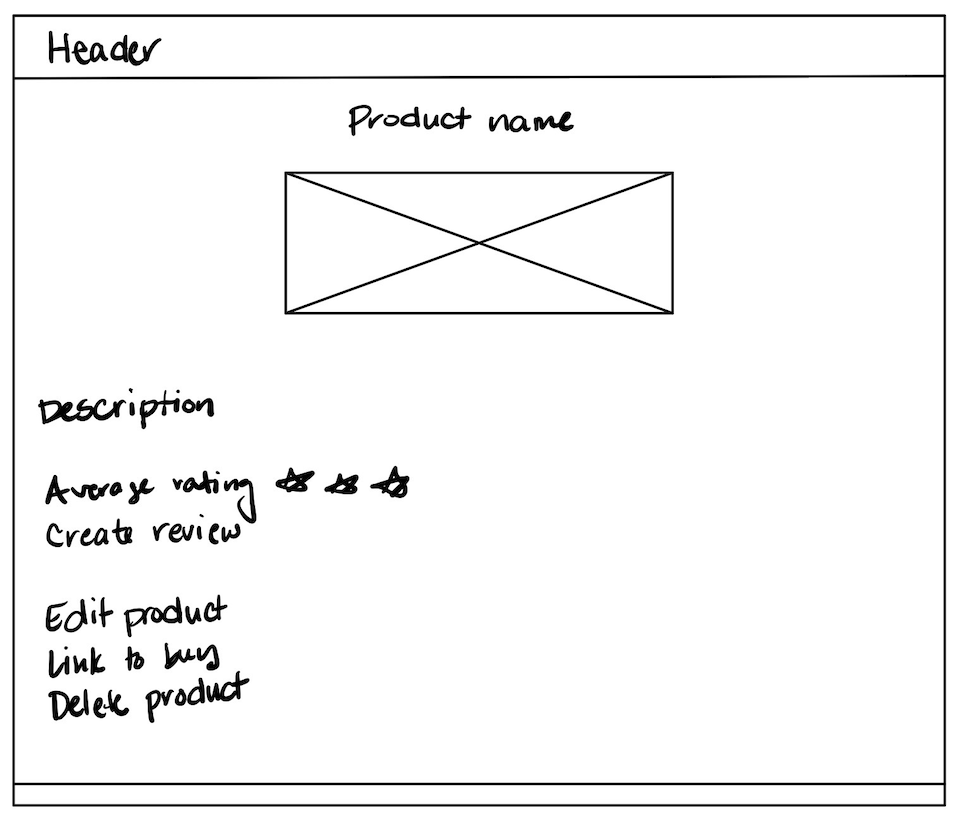 Header
Product name
Description
Average rating
Create review
Edit product
Link to buy
Delete product